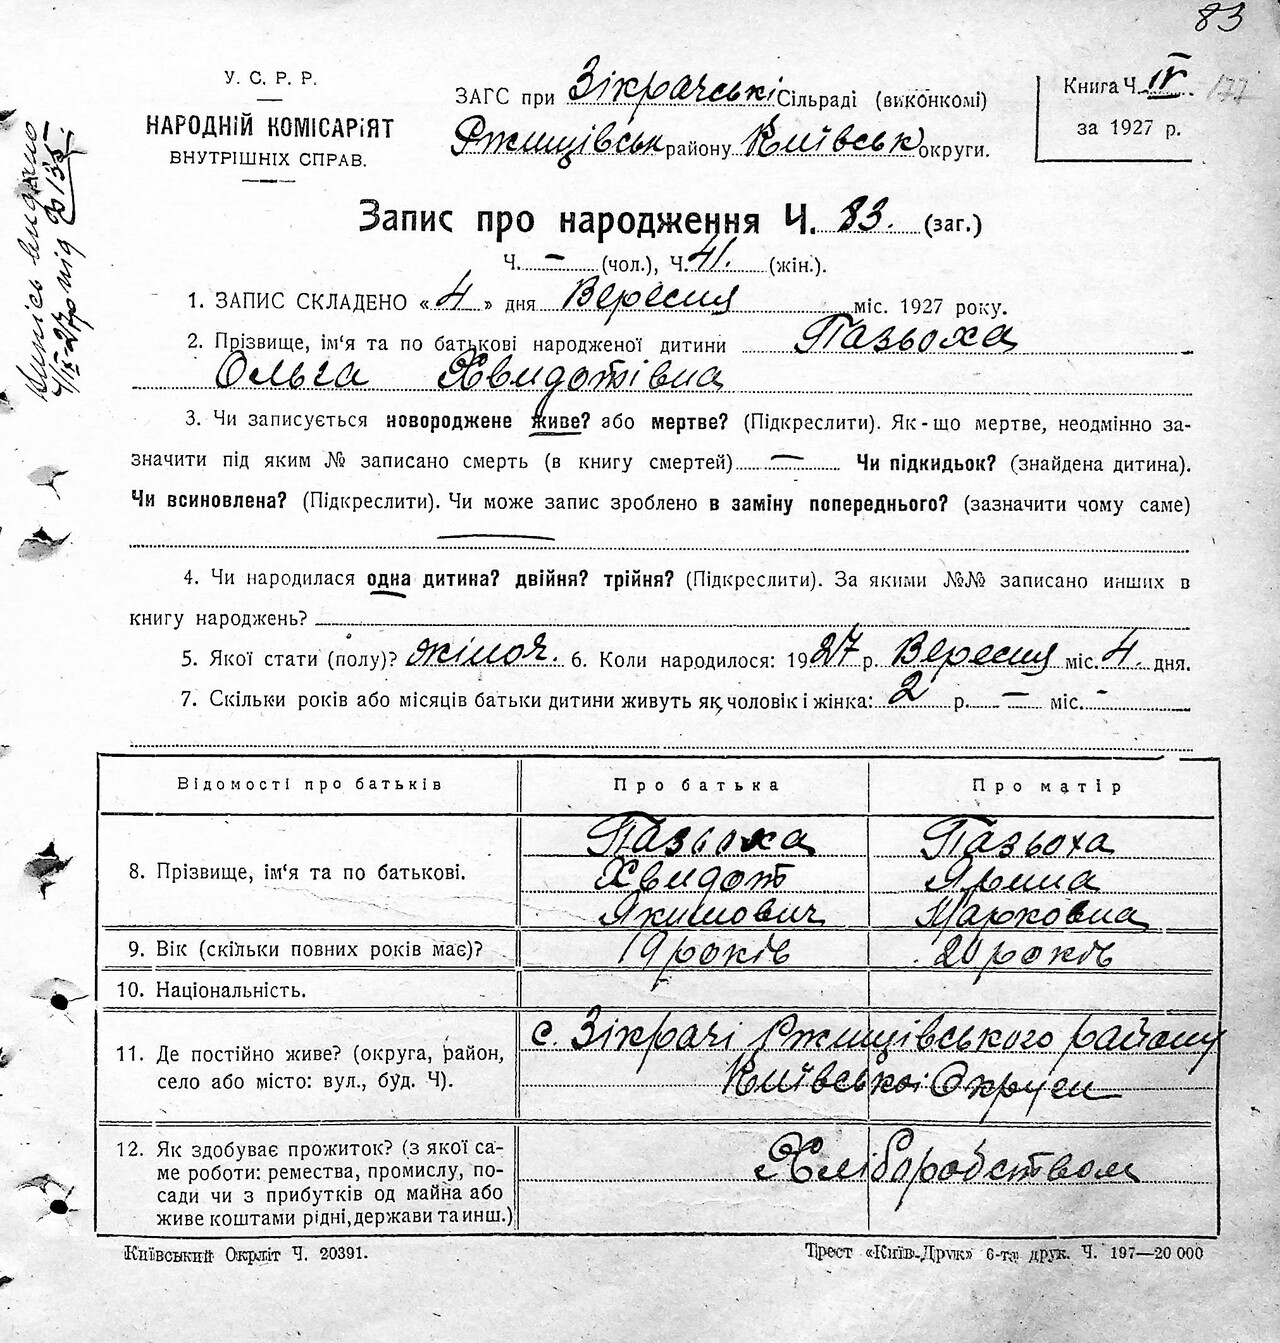 83
У. С. Р. Р.
НАРОДНІЙ КОМІСАРІЯТ
ВНУТРІШНІХ СПРАВ.
ЗАГС при Зікрачські Сільраді (виконкомі)
Ржищівськ району Київськ округи.
Книга Ч. IV 177
за 1927 р.
Випись видано
4/IX-27р під № 135
Запис про народження Ч. 83. (заг.)
Ч. — (чол.), Ч. 41. (жін.).
1. ЗАПИС СКЛАДЕНО «4» дня Вересня міс. 1927 року.
2. Прізвище, ім'я та по батькові народженої дитини Пазьоха
Ольга Хвидотівна
3. Чи записується новороджене живе? або мертве? (Підкреслити). Як-що мертве, неодмінно за-
значити під яким № записано смерть (в книгу смертей) — Чи підкидьок? (знайдена дитина).
Чи всиновлена? (Підкреслити). Чи може запис зроблено в заміну попереднього? (зазначити чому саме)
—
4. Чи народилася одна дитина? двійня? трійня? (Підкреслити). За якими №№ записано инших в
книгу народжень?
5. Якої стати (полу)? жіноч. 6. Коли народилося: 1927 р. Вересня міс. 4. дня.
7. Скільки років або місяців батьки дитини живуть як чоловік і жінка: 2 р. — міс. -
Відомості про батьків Про батька Про матір
8. Прізвище, ім'я та по батькові.
Пазьоха Пазьоха
Хвидот Ярина
Якимович Марковна
9. Вік (скільки повних років має)? 19 років 20 років
10. Національність.
11. Де постійно живе? (округа, район,
село або місто: вул., буд. Ч).
с. Зікрачі Ржищівського району
Київської Округи
12. Як здобуває прожиток? (з якої са-
ме роботи: ремества, промислу, по-
сади чи з прибутків од майна або
живе коштами рідні, держави та инш.)
Хліборобством
Київський Окрліт Ч. 20391.
Трест «Київ-Друк» 6-та друк. Ч. 197—20 000